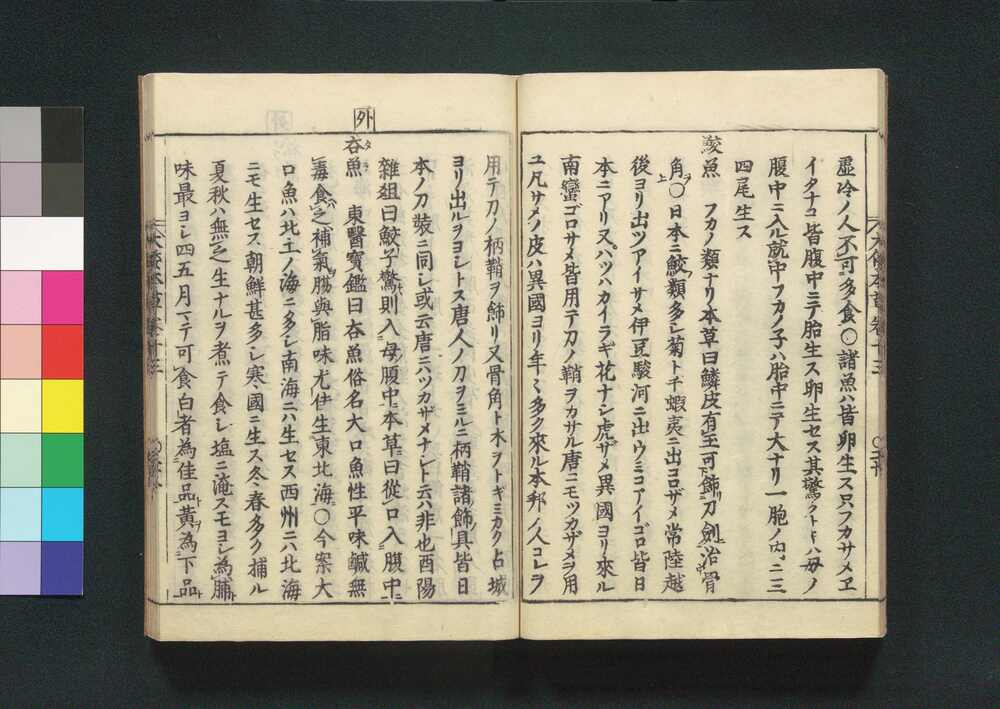 虚冷ノ人不可多食〇諸魚ハ皆卵生ス只フカサメヱ
イタナコ皆腹中ニテ胎生ス卵生セス其驚クトキハ母ノ
腹中ニ入ル就中フカノ子ハ胎中ニテ大ナリ一胞ノ内ニ三
四尾生ス
鮫魚 フカノ類ナリ本草曰鱗皮有玉可飾刀劍治骨
角〇日本ニ鮫ノ類多シ菊トチ蝦夷ニ出コロザメ常陸越
後ヨリ出ツアイサメ伊豆駿河ニ出ウミコアイゴロ皆日
本ニアリ又バツハカイラギ花ナシ虎ザメ異國ヨリ來ル
南蠻ゴロサメ皆用テ刀ノ鞘ヲカサル唐ニモツカザメヲ用
ユ凡サメノ皮ハ異國ヨリ年々多ク來ル本邦ノ人コレヲ
用テ刀ノ柄鞘ヲ飾リ又骨角ト木ヲトギミカク占城
ヨリ出ルヲヨシトス唐人ノ刀ヲミルニ柄鞘諸飾ノ具皆日
本ノ刀裝ニ同シ或云唐ニツカザメナシト云ハ非也酉陽
雜俎曰鮫子驚則入母腹中本草曰從口入腹中
外
呑魚 東醫寶鑑曰呑魚俗名大口魚性平味鹹無
毒食之補氣腸與脂味尤佳生東北海〇今案大
口魚ハ北土ノ海ニ多シ南海ニハ生セス西州ニハ北海
ニモ生セス朝鮮甚多シ寒國ニ生ス冬春多ク捕ル
夏秋ハ無之生ナルヲ煮テ食シ塩ニ淹スモヨシ為脯
味最ヨシ四五月マテ可食白者為佳品黄為下品